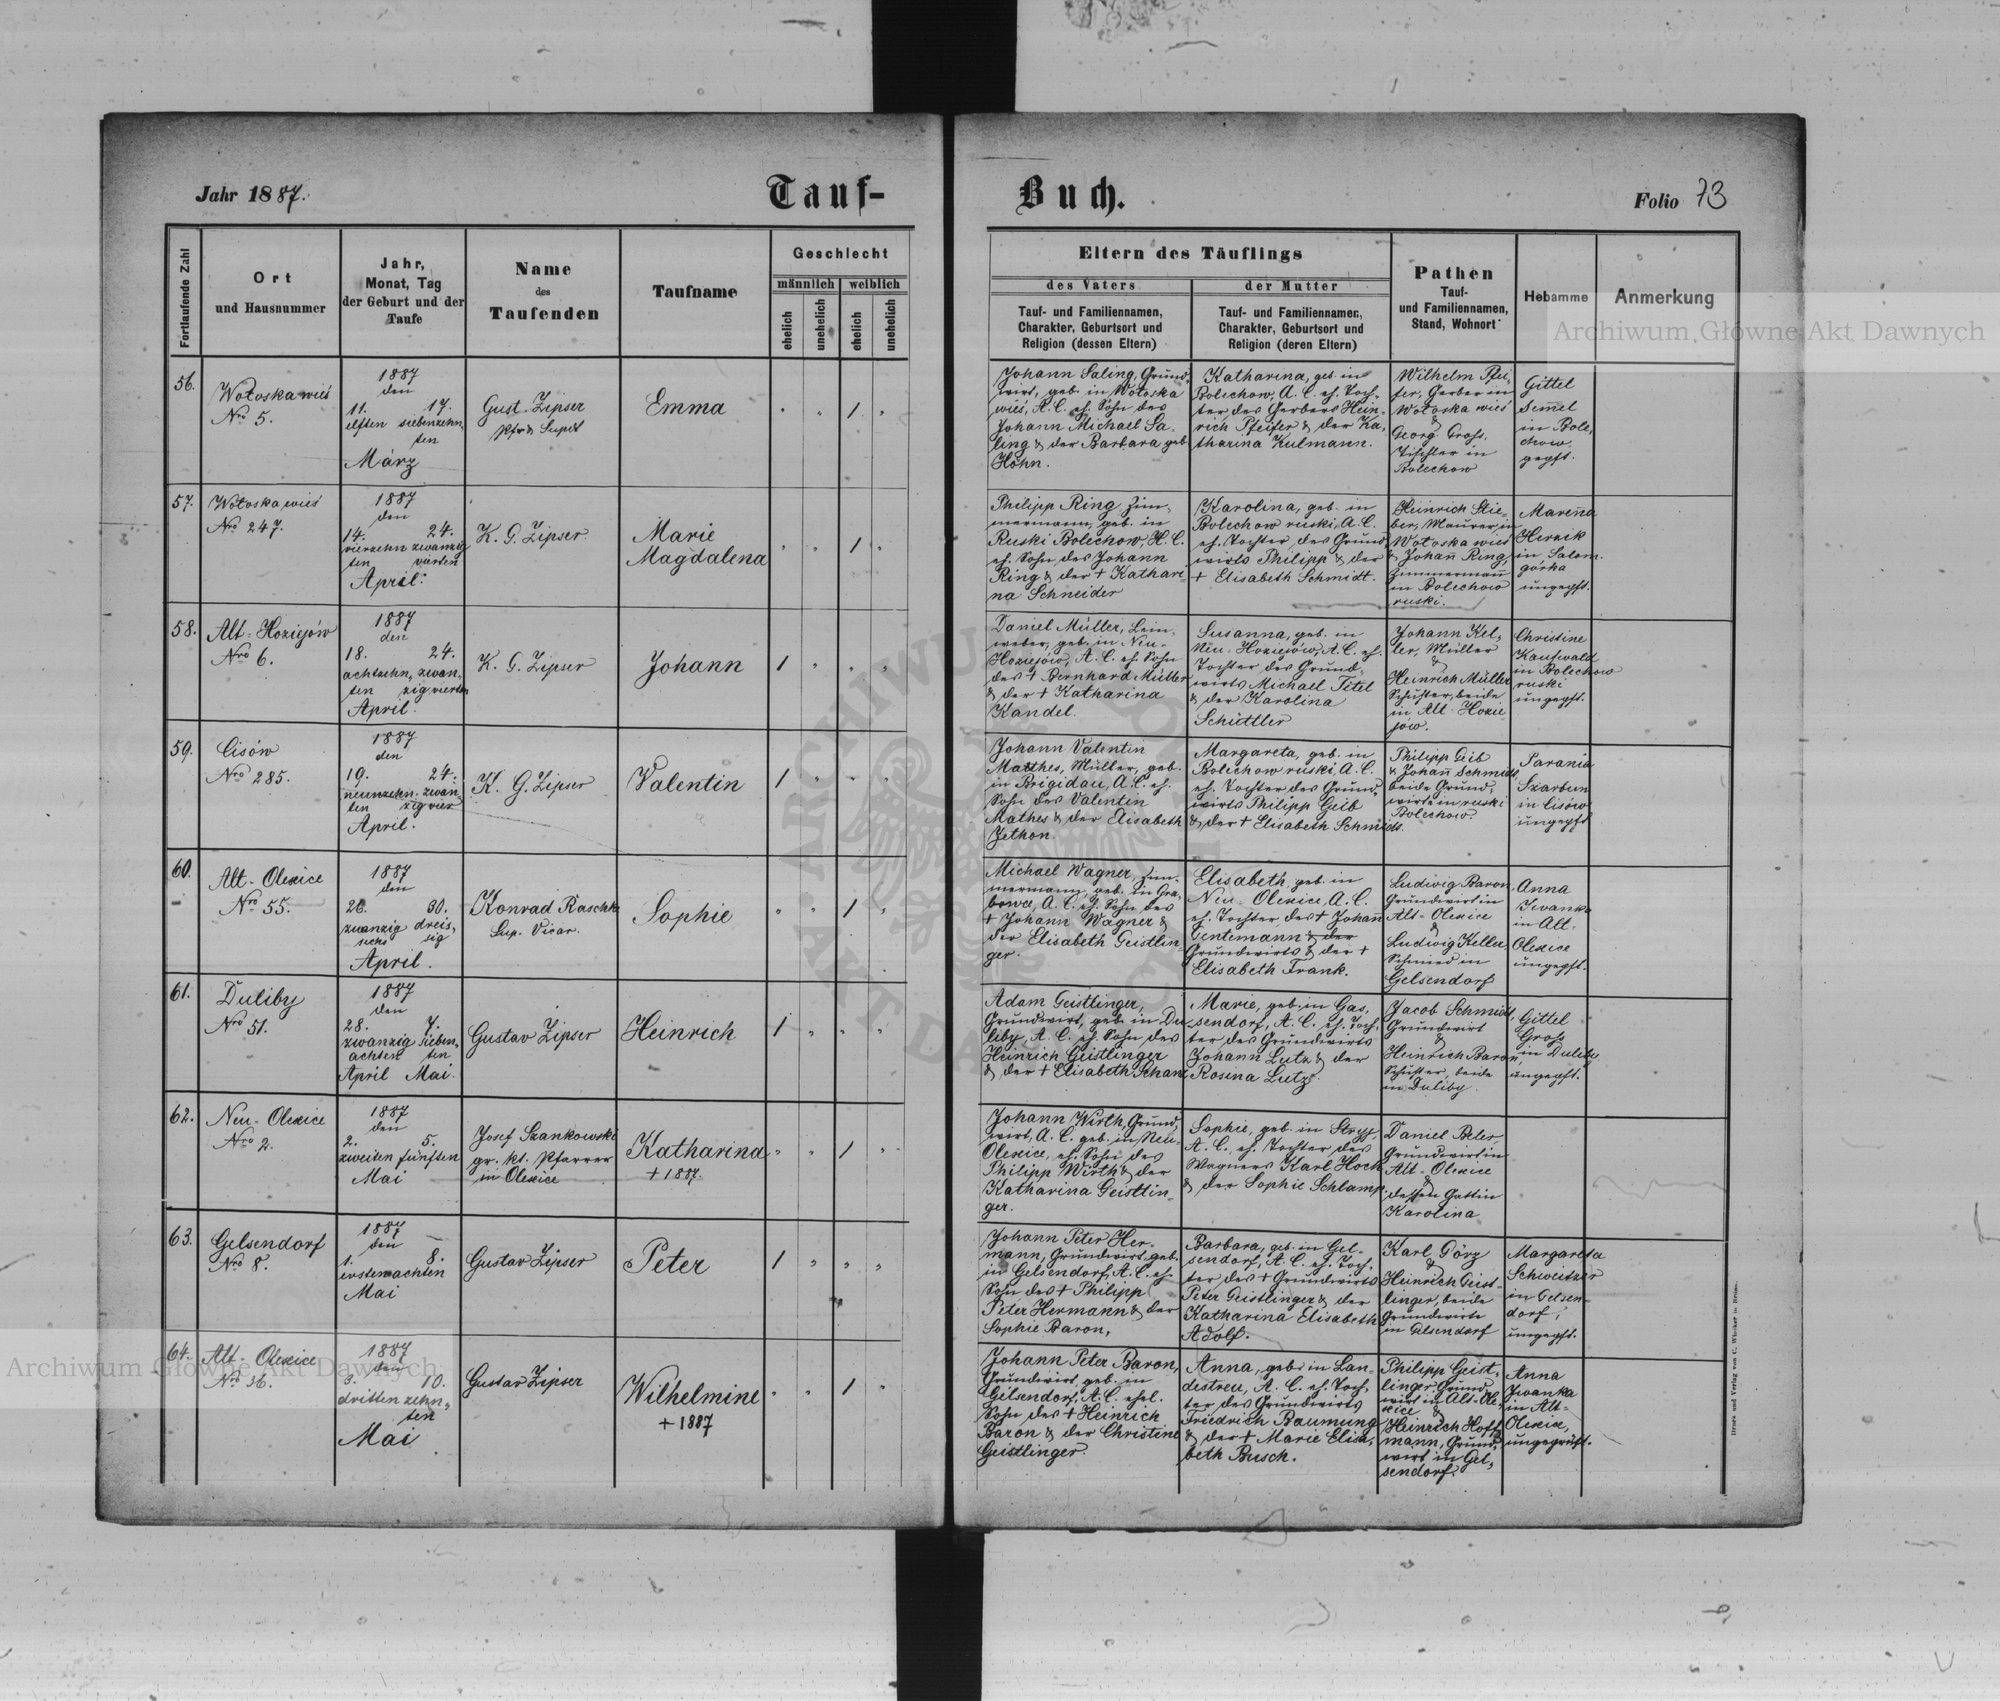 Jahr 1887.
Tauf-
Buch.
Folio 73
Fortlaufende Zahl
Ort
und Hausnummer
Jahr,
Monat, Tag
der Geburt und der
Taufe
Name
des
Taufenden
Taufname
Geschlecht
männlich
weiblich
ehelich
unehelich
ehelich
unehelich
Eltern des Täuflings
des Vaters
der Mutter
Tauf- und Familiennamen,
Charakter, Geburtsort und
Religion (dessen Eltern)
Tauf- und Familiennamen,
Charakter, Geburtsort und
Religion (deren Eltern)
Pathen
Tauf-
und Familiennamen,
Stand, Wohnort
Hebamme
Anmerkung
56.
Wołoska wieś
Nro 5.
1887
den
11. 17.
elften siebenzehn,
ten
März
Gust. Zipser
Pfr & Supdt
Emma
1
Johann Saling, Grund,
wirt, geb. in Wołoska
wieś, A. C. eh. Sohn des
Johann Michael Sa,
ling & der Barbara geb
Höhn.
Katharina, geb. in
Bolechow, A. C. eh. Toch,
ter des Gerbers Hein,
rich Pfeifer & der Ka,
tharina Kulmann.
Wilhelm Pfei,
fer, Gerber in
Wołoska wieś
&
Georg Gross,
Tischler in
Bolechow
Gittel
Semmel
in Bole,
chow,
gepft.
57.
Wołoska wieś
Nro 247.
1887
den
14. 24.
vierzehn zwanzig
ten vierten
April.
K. G. Zipser
Marie
Magdalena
1
Philipp Ring Zim,
mermann, geb. in
Ruski Bolechow, H. C.
eh. Sohn des Johann
Ring & der + Kathari
na Schneider
Karolina, geb. in
Bolechow ruski, A. C.
eh. Tochter des Grund
wirts Philipp & der
+ Elisabeth Schmidt.
Heinrich Stie,
ber, Maurer, in
Wołoska wieś
& Johann Ring,
Zimmermann
in Bolechow
ruski.
Marenna
Hersik
in Salom.
gorka
ungepft.
58.
Alt-Hoziejów
Nro 6.
1887
den
18. 24.
achtzehn, zwan,
ten zig vierten
April.
K. G. Zipser
Johann
1
Daniel Müller, Lein,
weber, geb. in Neu-
Hoziejów, A. C. eh. Sohn
des + Bernhard Müller
& der + Katharina
Kandel.
Susanna, geb. in
Neu-Hoziejów, A. C. eh.
Tochter des Grund,
wirts Michael Titel
& der Karolina
Schüttler
Johann Kel,
ler, Müller
&
Heinrich Müller
Schuster, beide
in Alt Hozie
jów.
Christine
Kautwald
in Bolechow
ruski
ungepft.
59.
Cisów
Nro 285.
1887
den
19. 24.
neunzehn, zwan,
ten zig vier
April.
K. G. Zipser
Valentin
1
Johann Valentin
Matthes, Müller, geb.
in Brigidau, A. C. eh.
Sohn des Valentin
Mathes & der Elisabeth
Jethon.
Margareta, geb. in
Bolechow ruski, A. C.
eh. Tochter des Grund,
wirts Philipp Geib
& der + Elisabeth Schmidt.
Philipp Geib
& Johann Schmidt,
beide Grund,
wirte in ruski
Bolechow.
Parania
Skarbun
in Cisów
ungepft
60.
Alt-Olexice
Nro 55.
1887
den
26. 30.
zwanzig dreis,
sechs sig
April.
Konrad Raschke
Sup. Vicar.
Sophie
1
Michael Wagner, Zim,
mermann, geb. in Gra,
bowce, A. C. eh. Sohn des
+ Johann Wagner &
der Elisabeth Geistlin,
ger.
Elisabeth, geb. in
Neu-Olexice, A. C.
eh. Tochter des + Johan
Gentemann & der
Grundwirts & der +
Elisabeth Frank.
Ludwig Baron,
Grundwirt in
Alt-Olexice
&
Ludwig Keller
Schmied in
Gelsendorf
Anna
Iwanka
in Alt-
Olexice
ungepft.
61.
Duliby
Nro 51.
1887
den
28. 7.
zwanzig sieben,
achten ten
April Mai.
Gustav Zipser
Heinrich
1
Adam Geistlinger,
Grundwirt, geb. in Du
liby, A. C. eh. Sohn des
Heinrich Geistlinger
& der + Elisabeth Schanz
Marie, geb. in Gas,
sendorf, A. C. eh. Toch,
ter des Grundwirts
Johann Lutz & der
Rosina Lutz.
Jacob Schmidt,
Grundwirt
&
Heinrich Baron,
Schuster, beide
in Duliby.
Gittel
Gross
in Duliby,
ungepft.
62.
Neu-Olexice
Nro 2.
1887
den
2. 5.
zweiten fünften
Mai
Josef Szankowski
gr. kt. Pfarrer
in Olexice
Katharina
+ 1887.
1
Johann Wirth, Grund,
wirt, A. C. geb. in Neu-
Olexice, eh. Sohn des
Philipp Wirth & der
Katharina Geistlin,
ger.
Sophie, geb. in Stryj,
A. C. eh. Tochter des
Wagners Karl Hock
& der Sophie Schlamp
Daniel Beler,
Grundwirt in
Alt-Olexice
&
dessen Gattin
Karolina
63.
Gelsendorf
Nro 8.
1887
den
1. 8.
ersten achten
Mai
Gustav Zipser
Peter
1
Johann Peter Her-
mann, Grundwirt, geb.
in Gelsendorf, A. C. eh.
Sohn des + Philipp
Peter Hermann & der
Sophie Baron,
Barbara, geb. in Gel-
sendorf, A. C. eh. Toch,
ter des + Grundwirts
Peter Geistlinger & der
Katharina Elisabeth
Adolf.
Karl Görz
&
Heinrich Geist-
linger, beide
Grundwirte
in Gelsendorf
Margareta
Schweitzer
in Gelsen-
dorf,
ungepft.
64.
Alt-Olexice
Nro 36.
1887
den
3. 10.
dritten zehn,
ten
Mai
Gustav Zipser
Wilhelmine
+ 1887
1
Johann Peter Baron,
Grundwirt, geb. in
Gelsendorf, A. C. ehel.
Sohn des + Heinrich
Baron & der Christine
Geistlinger.
Anna, geb. in Lan,
destreu, A. C. eh. Toch,
ter des Grundwirts
Friedrich Baumung
& der + Marie Elisa,
beth Busch.
Philipp Geist,
linger, Grund,
wirt in Alt-Ole
xice &
Heinrich Hoff
mann, Grund,
wirt in Gel,
sendorf.
Anna
Iwanka
in Alt-
Olexice,
ungeprüft.
Archiwum Główne Akt Dawnych
Archiwum Główne Akt Dawnych